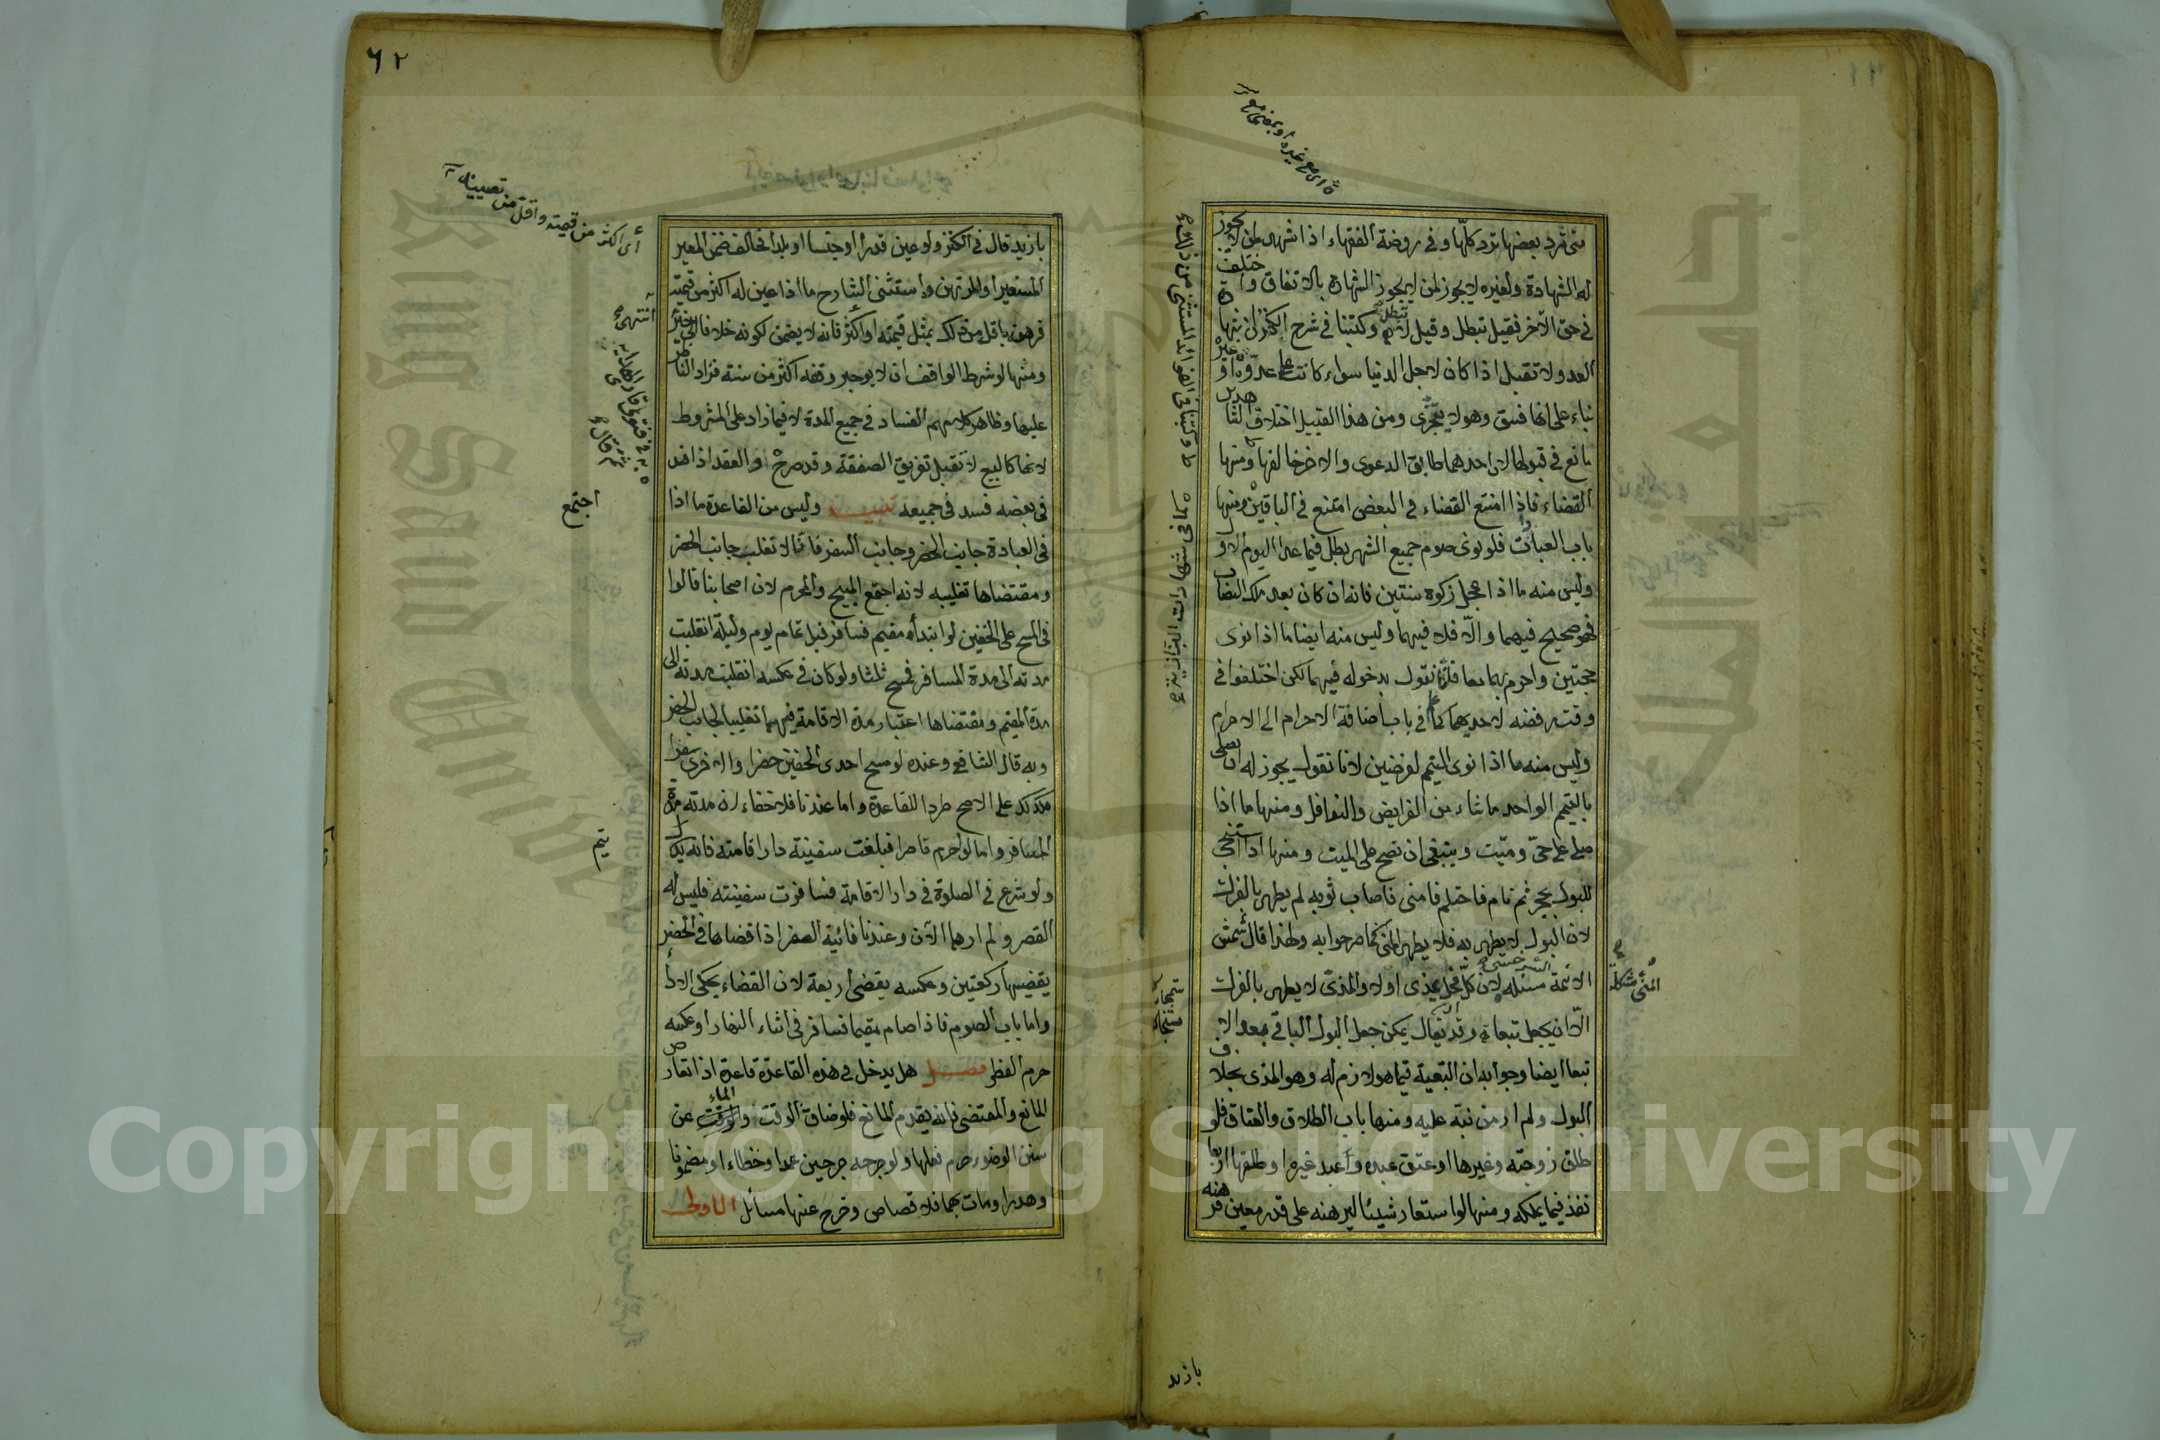 متى ترد بعضها ترد كلها وفى روضة الفقهاء اذا شهد لمن لا يجوز
له الشهادة ولغيره لا يجوز لمن لا يجوز الشهادة بالاتفاق واختلف
فى حق الآخر فقيل تبطل وقيل لا تبطل وكتبنا فى شرح الكنز ان منها
العدو لا تقبل اذا كان لاجل الدنيا سواء كانت على عدوه او غيره
بناء على انها فسق وهو لا يتجزى ومن هذا القبيل اختلاف الشاهدين
مانع فى قبولها لان احدهما طابق الدعوى والاخر خالفها ومنها
القضاء فاذا امتنع القضاء فى البعض امتنع فى الباقين ومنها
باب العبادات فلو نوى صوم جميع الشهر بطل فيما عدا اليوم الاول
وليس منه ما اذا عجل زكوة سنتين فانه ان كان بعد ملك النصاب
فهو صحيح فيهما والا فلا فيهما وليس منه ايضا ما اذا نوى
حجتين واحرم بهما معا فانا نقول بدخوله فيهما لكن اختلفوا فى
وقت رفضه لاحديهما كما فى باب اضافة الاحرام الى الاحرام
وليس منه ما اذا نوى التيمم لفرضين لانا نقول يجوز له ان يصلى
بالتيمم الواحد ما شاء من الفرايض والنوافل ومنها ما اذا
صلى على حى وميت وينبغى ان تصح على الميت ومنها اذا استنجى
للبول بحجر ثم نام فاحتلم فامنى فاصاب ثوبه لم يطهر بالفرك
لان البول لا يطهر به فلا يطهر المنى كما صرحوا به ولهذا قال شمس
الائمة السرخسى مسئلة المنى مشكلة لان كل فحل يمذى اولا والمذى لا يطهر بالفرك
الا ان يجعل تبعا وقد يقال يمكن جعل البول الباقى بعد الاستنجاء
تبعا ايضا وجوابه ان التبعية فيما هو لازم له وهو المذى بخلاف
البول ولم ار من نبه عليه ومنها باب الطلاق والعتاق فلو
طلق زوجته وغيرها او عتق عبده وعبد غيره او طلقها اربعا
نفذ فيما يملكه ومنها لو استعار شيئا ليرهنه على قدر معين فرهنه
بازيد
٦٢
بازيد قال فى الكنز ولو عين قدرا او جنسا او بلدا فخالف ضمن المعير
المستعير او المرتهن واستثنى الشارح ما اذا عين له اكثر من قيمته
فرهنه باقل من ذلك بمثل قيمته او اكثر فانه لا يضمن لكونه خلافا الى خير
ومنها لو شرط الواقف ان لا يوجر وقفه اكثر من سنة فزاد الناظر
عليها وظاهر كلامهم الفساد فى جميع المدة لا فيما زاد على المشروط
لانها كالبيع لا تقبل تفريق الصفقة وقد صرح والعقد اذا فسد
فى بعضه فسد فى جميعه تنبيه وليس من القاعدة ما اذا اجتمع
فى العبادة جانب الحضر وجانب السفر فانا لا تغلب جانب الحضر
ومقتضاها تغليبه لانه اجتمع المبيح والمحرم لان اصحابنا قالوا
فى المسح على الخفين لو ابتدأه مقيم فسافر قبل تمام يوم وليلة انقلبت
مدته الى مدة المسافر فمسح ثلثا ولو كان فى عكسه انقلبت مدته الى
مدة المقيم ومقتضاها اعتبار مدة الاقامة فيهما تغليبا لجانب الحضر
وبه قال الشافعى وعنده لو مسح احدى الخفين حضرا والاخرى سفرا
فكذلك على الاصح طردا للقاعدة واما عندنا فلا خفاء ان مدته مدة
المسافر واما لو احرم قاصرا فبلغت سفينته دار اقامته فانه يتم
ولو شرع فى الصلوة فى دار الاقامة فسافرت سفينته فليس له
القصر ولم ارهما الآن وعندنا فائتة السفر اذا قضاها فى الحضر
يقضيها ركعتين وعكسه يقضى اربعة لان القضاء يحكى الاداء
واما باب الصوم فاذا صام مقيما فسافر فى اثناء النهار او عكسه
حرم الفطر فصل هل يدخل فى هذه القاعدة قاعدة اذا تعارض
المانع والمقتضى فانه يقدم المانع فلو ضاق الوقت والماء عن
سنن الوضوء حرم فعلها ولو جرحه جرحين عمدا وخطاء او مضمونا
وهدرا ومات بهما فلا قصاص وخرج عنها مسائل الاولى
اى اكثر من قيمته واقل من تعيينه
انتهى